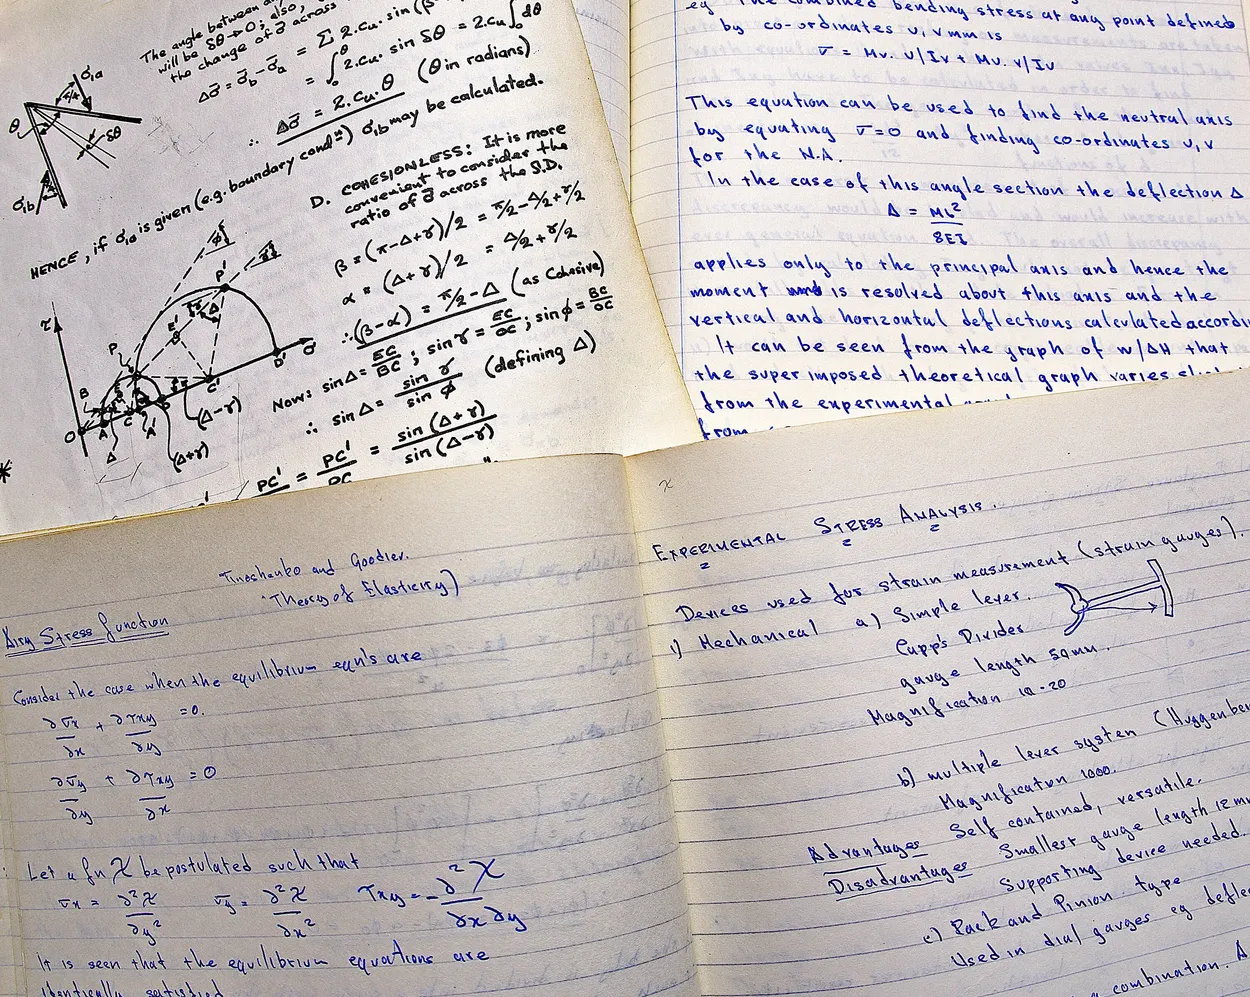 The angle between an
will be δθ → 0; also,
the change of σ̄ across
Δσ̄ = σ̄b - σ̄a = Σ 2.cu. sin (β
= ∫₀^θ 2.cu. sin δθ = 2.cu ∫₀ dθ
∴ Δσ̄ = 2.cu.θ (θ in radians)
HENCE, if σ1a is given (e.g. boundary condⁿ) σ1b may be calculated.
σ1a
θ
δθ
σ1b
D. COHESIONLESS: It is more
convenient to consider the
ratio of σ̄ across the S.D.
β = (π-Δ+γ)/2 = π/2-Δ/2+γ/2
α = (Δ+γ)/2 = Δ/2+γ/2
∴ (β-α) = π/2 - Δ (as Cohesive)
Now: sin Δ = EC/BC ; sin γ = EC/OC ; sin φ = BC/OC
∴ sin Δ = sin γ / sin φ (defining Δ)
PC'/ = PC'/PC = sin (Δ+γ) / sin (Δ-γ)
τ
P'
E'
P
B
O
A
C
A'
C'
D'
σ
Δ
(Δ-γ)
(Δ+γ)
*
eg The combined bending stress at any point defined
by co-ordinates u, v mm is
σ = Mv. U/Iv + Mu. v/Iu
This equation can be used to find the neutral axis
by equating σ=0 and finding co-ordinates u, v
for the N.A.
In the case of this angle section the deflection Δ
Δ = ML²
8EI
applies only to the principal axis and hence the
moment is resolved about this axis and the
vertical and horizontal deflections calculated accordi
It can be seen from the graph of W/ΔH that
the superimposed theoretical graph varies
from the experimental
from
Timoshenko and Goodier.
'Theory of Elasticity)
Airy Stress function
Consider the case when the equilibrium eqn's are
∂σx/∂x + ∂τxy/∂y = 0.
∂σy/∂y + ∂τxy/∂x = 0
Let a fn χ be postulated such that
σx = ∂²χ/∂y² σy = ∂²χ/∂x² τxy = -∂²χ/∂x∂y
It is seen that the equilibrium equations are
identically satisfied
x
EXPERIMENTAL STRESS ANALYSIS.
Devices used for strain measurement (strain gauges).
1) Mechanical a) Simple lever.
Capp's Divider
gauge length 50mm.
Magnification 10-20
b) multiple lever system (Huggenber
Magnification 1000.
Advantages Self contained, versatile.
Disadvantages Smallest gauge length 12mm
Supporting device needed.
c) Rack and Pinion type
Used in dial gauges eg defle
combination. A